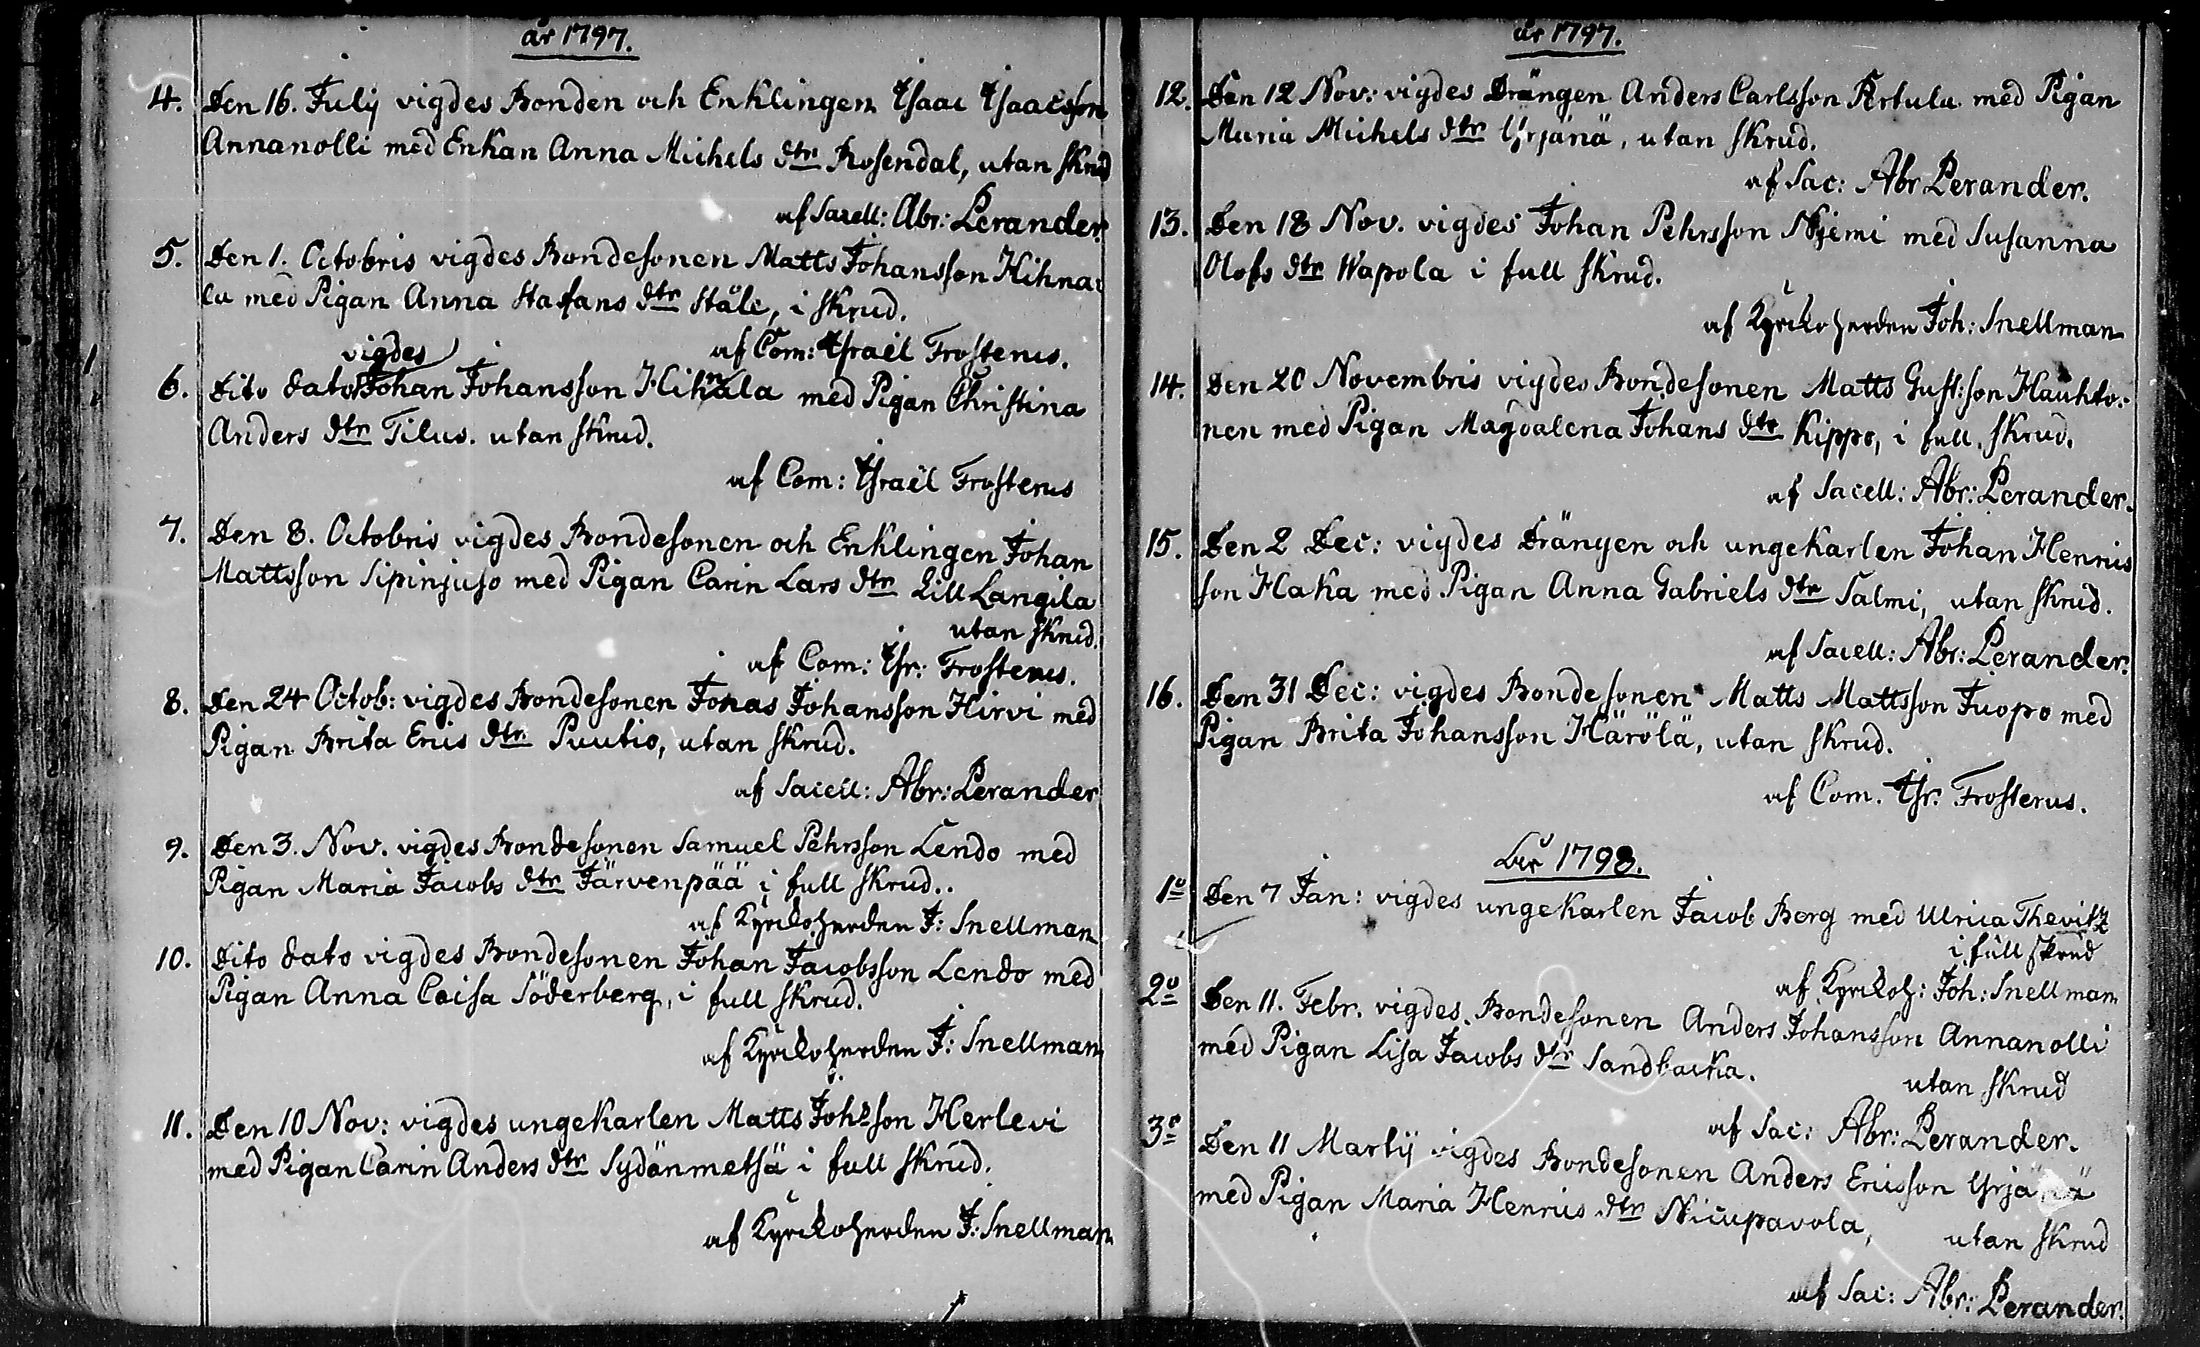 år 1797.
4. Den 16. July vigdes Bonden och Enklingen Isaac Isaacsson
Annanolli med Enkan Anna Michels dtr Rosendal, utan skrud
af Sacell: Abr: Perander.
5. Den 1. Octobris vigdes Bondesonen Matts Johansson Hihna-
la med Pigan Anna Stafans dtr Ståle, i skrud.
af Com: Israël Frosterus.
vigdes
6. Dito dato Johan Johansson Hihnala med Pigan Christina
Anders dtr Tilus. utan skrud.
af Com: Israël Frosterus
7. Den 8. Octobris vigdes Bondesonen och Enklingen Johan
Mattsson Sipinjuso med Pigan Carin Lars dtr Lill Langila
utan skrud.
af Com: Isr: Frosterus.
8. Den 24 Octob: vigdes Bondesonen Jonas Johansson Hirvi med
Pigan Brita Erics dtr Puutio, utan skrud.
af Sacell: Abr: Perander
9. Den 3. Nov. vigdes Bondesonen Samuel Pehrsson Lendo med
Pigan Maria Jacobs dtr Järvenpää i full skrud..
af Kyrckoherden J: Snellman
10. Dito dato vigdes Bondesonen Johan Jacobsson Lendo med
Pigan Anna Caisa Söderberg, i full skrud.
af Kyrckoherden J: Snellman
11. Den 10 Nov: vigdes ungekarlen Matts Johsson Herlevi
med Pigan Carin Anders dtr Sydänmetsä i full skrud.
af Kyrckoherden J: Snellman
år 1797.
12. Den 12 Nov: vigdes Drängen Anders Carlsson Pertula med Pigan
Maria Michels dtr Yrjänä, utan skrud.
af Sac: Abr Perander.
13. Den 18 Nov. vigdes Johan Pehrsson Njemi med Susanna
Olofs dtr Wapola i full skrud.
af Kyrckoherden Joh: Snellman
14. Den 20 Novembris vigdes Bondesonen Matts Gust:son Hauhto-
nen med Pigan Magdalena Johans dtr Kippo, i full skrud.
af Sacell: Abr: Perander.
15. Den 2 Dec: vigdes Drängen och ungekarlen Johan Henrics
son Haka med Pigan Anna Gabriels dtr Salmi, utan skrud.
af Sacell: Abr: Perander.
16. Den 31 Dec: vigdes Bondesonen Matts Mattsson Juopo med
Pigan Brita Johansson Härölä, utan skrud.
af Com. Isr: Frosterus.
år 1798.
1o Den 7 Jan: vigdes ungekarlen Jacob Berg med Ulrica Thevitz
i full skrud
af Kyrckoh: Joh: Snellman
2o Den 11. Febr. vigdes Bondesonen Anders Johansson Annanolli
med Pigan Lisa Jacobs dtr Sandbacka.
utan skrud
af Sac: Abr: Perander.
3o Den 11 Martij vigdes Bondesonen Anders Ericsson Yrjänä
med Pigan Maria Henrics dtr Nicupavola,
utan skrud
af Sac: Abr: Perander.